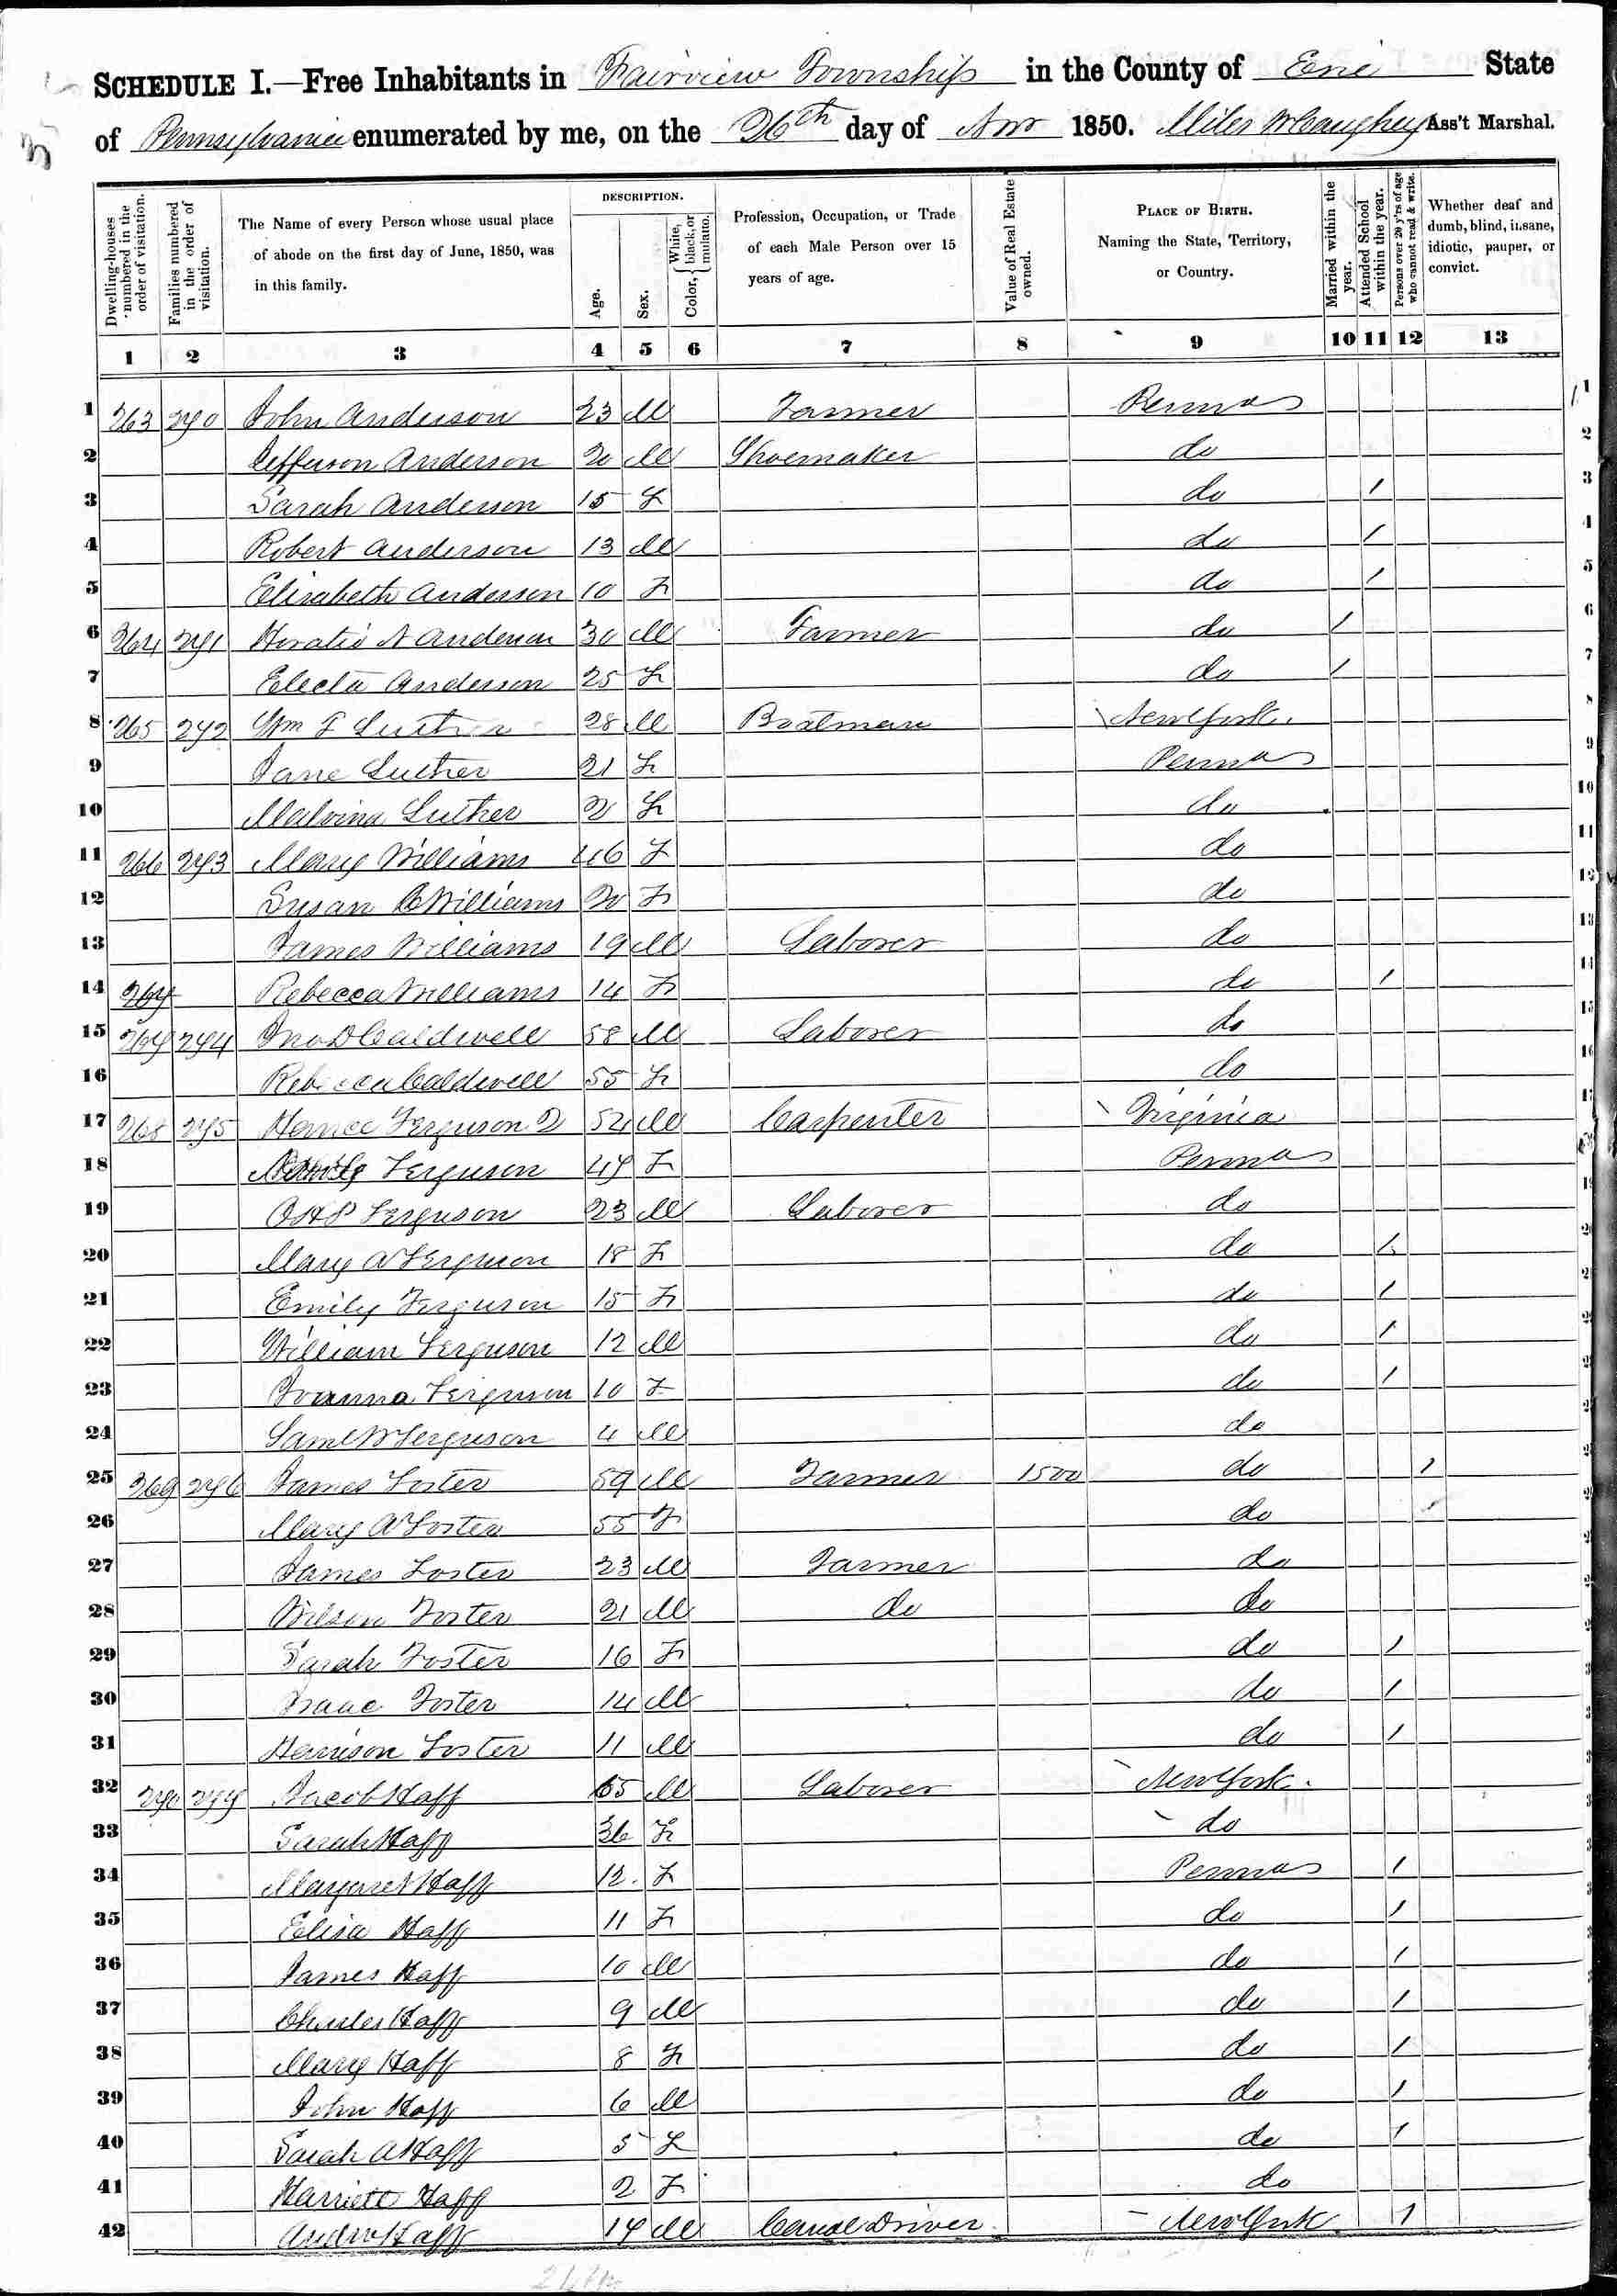 SCHEDULE I.—Free Inhabitants in Fairview Township in the County of Erie State
of Pennsylvania enumerated by me, on the 26th day of Nov 1850. Miles McCaughey Ass't Marshal.
Dwelling-houses numbered in the order of visitation.
Families numbered in the order of visitation.
The Name of every Person whose usual place of abode on the first day of June, 1850, was in this family.
DESCRIPTION.
Age.
Sex.
Color, { White, black, or mulatto.
Profession, Occupation, or Trade of each Male Person over 15 years of age.
Value of Real Estate owned.
PLACE OF BIRTH. Naming the State, Territory, or Country.
Married within the year.
Attended School within the year.
Persons over 20 y'rs of age who cannot read & write.
Whether deaf and dumb, blind, insane, idiotic, pauper, or convict.
1 2 3 4 5 6 7 8 9 10 11 12 13
1 263 270 John Anderson 23 M Farmer Penna 1
2 Jefferson Anderson 20 M Shoemaker do 2
3 Sarah Anderson 15 F do 1 3
4 Robert Anderson 13 M do 1 4
5 Elisabeth Anderson 10 F do 1 5
6 264 271 Horatio N Anderson 30 M Farmer do 1 6
7 Electa Anderson 25 F do 1 7
8 265 272 Wm Luther 28 M Boatman New York 8
9 Jane Luther 21 F Penna 9
10 Malvina Luther 2 F do 10
11 266 273 Mary Williams 46 F do 11
12 Susan C Williams 20 F do 12
13 James Williams 19 M Laborer do 13
14 267 Rebecca Williams 14 F do 1 14
15 267 274 Jno D Caldwell 58 M Laborer do 15
16 Rebecca Caldwell 55 F do 16
17 268 275 Ferguson 52 M Carpenter Virginia 17
18 Ferguson 47 F Penna
19 O H P Ferguson 23 M Laborer do
20 Mary A Ferguson 18 F do 1
21 Emily Ferguson 15 F do 1
22 William Ferguson 12 M do 1
23 Joanna Ferguson 10 F do 1
24 Saml W Ferguson 4 M do
25 269 276 James Foster 59 M Farmer 1500 do 1
26 Mary A Foster 55 F do 1
27 James Foster 23 M Farmer do
28 Wilson Foster 21 M do do
29 Sarah Foster 16 F do 1
30 Isaac Foster 14 M do 1
31 Harrison Foster 11 M do 1
32 270 277 Jacob Haff 55 M Laborer New York
33 Sarah Haff 36 F do
34 Margaret Haff 12 F Penna 1
35 Elisa Haff 11 F do 1
36 James Haff 10 M do 1
37 Charles Haff 9 M do 1
38 Mary Haff 8 F do 1
39 John Haff 6 M do 1
40 Sarah A Haff 5 F do 1
41 Harriett Haff 2 F do
42 Andrw Haff 17 M Canal Driver New York 1